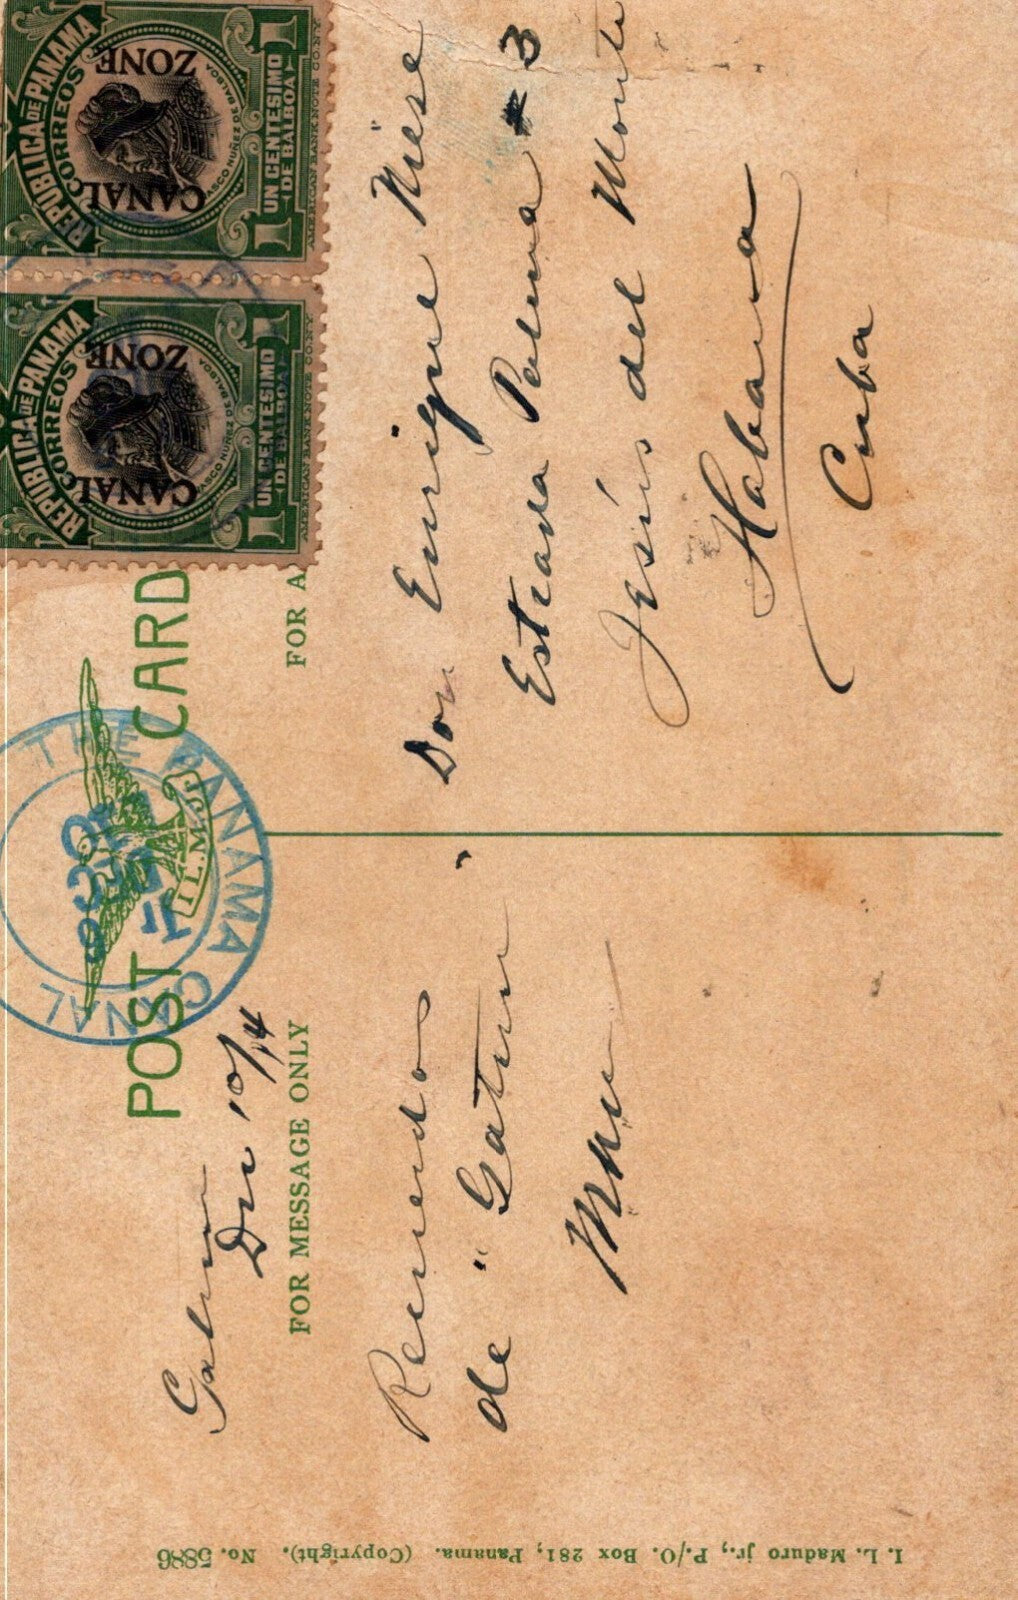 POST CARD
I.L.M.Jr.
THE PANAMA CANAL
FOR MESSAGE ONLY
FOR A
Gatun
Dec 10/14
Recuerdos
de "Gatun"
Don Enrique Niese
Estrada Palma #3
Jesús del Monte
Habana
Cuba
REPUBLICA DE PANAMA
CORREOS
CANAL ZONE
VASCO NUÑEZ DE BALBOA
1 UN CENTESIMO 1
DE BALBOA
AMERICAN BANK NOTE CO. N.Y.
REPUBLICA DE PANAMA
CORREOS
CANAL ZONE
VASCO NUÑEZ DE BALBOA
1 UN CENTESIMO 1
DE BALBOA
AMERICAN BANK NOTE CO. N.Y.
I. L. Maduro jr., P./O. Box 281, Panama. (Copyright). No. 5886